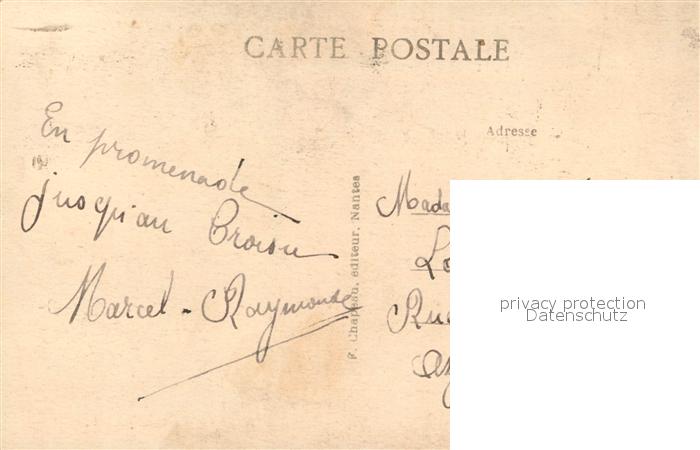 CARTE POSTALE
Adresse
En promenade
jusqu'au Croisic
Marcel - Raymonde
F. Chapeau, éditeur, Nantes
Rue
privacy protection
Datenschutz